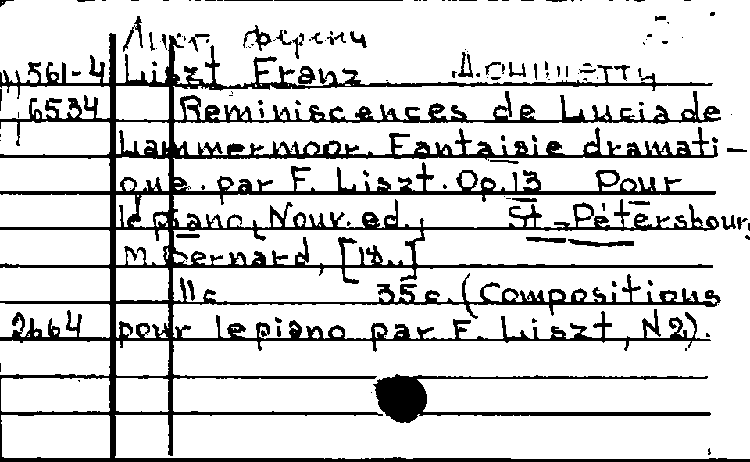 Лист Ференц
561-4 Liszt Franz Доницетти
6534 Reminiscences de Lucia de
Lammermoor. Fantaisie dramati-
que. par F. Liszt. Op.13 Pour
le piano, Nouv. ed., St.-Pétersbourg,
M. Bernard, [18..]
11 c. 35 c. (Compositions
2664 pour le piano par F. Liszt, N 2).